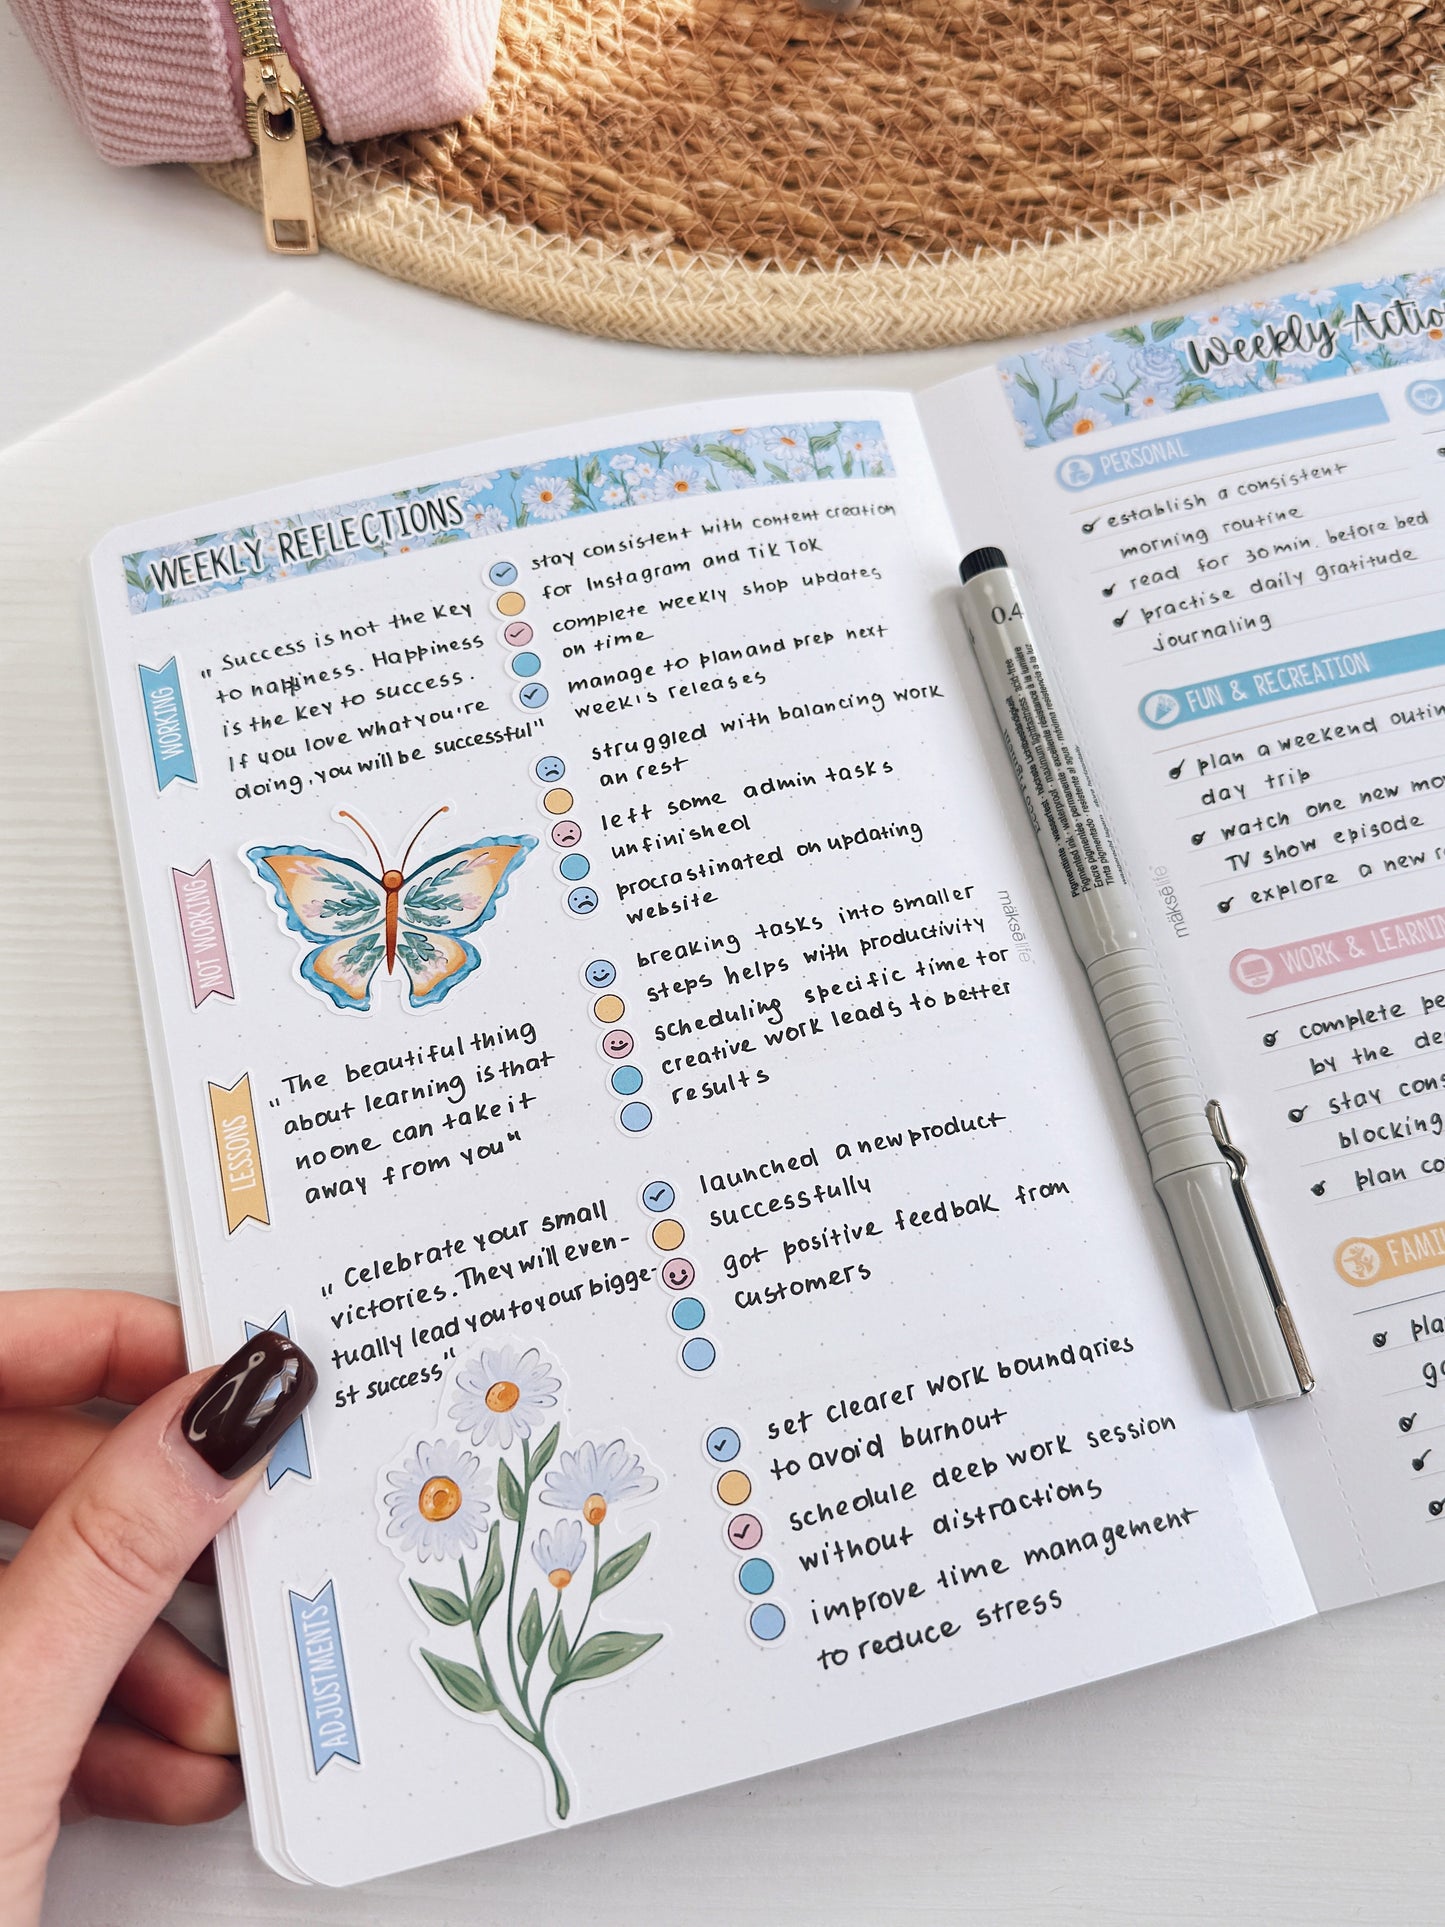 WEEKLY REFLECTIONS
WORKING
„Success is not the key
to happiness. Happiness
is the key to success.
If you love what you're
doing, you will be successful"
stay consistent with content creation
for Instagram and TikTok
complete weekly shop updates
on time
manage to plan and prep next
week's releases
NOT WORKING
struggled with balancing work
an rest
left some admin tasks
unfinished
procrastinated on updating
website
LESSONS
„The beautiful thing
about learning is that
no one can take it
away from you"
breaking tasks into smaller
steps helps with productivity
scheduling specific time for
creative work leads to better
results
„Celebrate your small
victories. They will even-
tually lead you to your bigge-
st success"
launched a new product
successfully
got positive feedbak from
customers
ADJUSTMENTS
set clearer work boundaries
to avoid burnout
schedule deep work session
without distractions
improve time management
to reduce stress
mäksēlife
0.4
Weekly Actio
PERSONAL
establish a consistent
morning routine
read for 30 min. before bed
practise daily gratitude
journaling
FUN & RECREATION
plan a weekend outin
day trip
watch one new mo
TV show episode
explore a new r
mäksēlife
WORK & LEARNIN
complete pe
by the de
stay cons
blocking
plan co
FAMI
pla
go